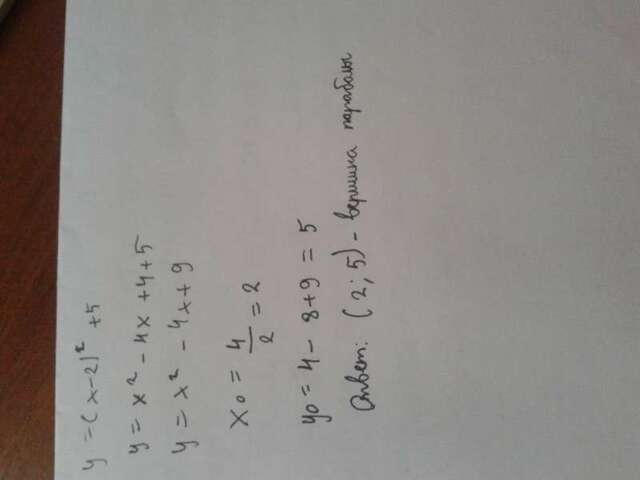 y = (x-2)² + 5
y = x² - 4x + 4 + 5
y = x² - 4x + 9
x0 = 4/2 = 2
y0 = 4 - 8 + 9 = 5
Ответ: (2; 5) - вершина параболы